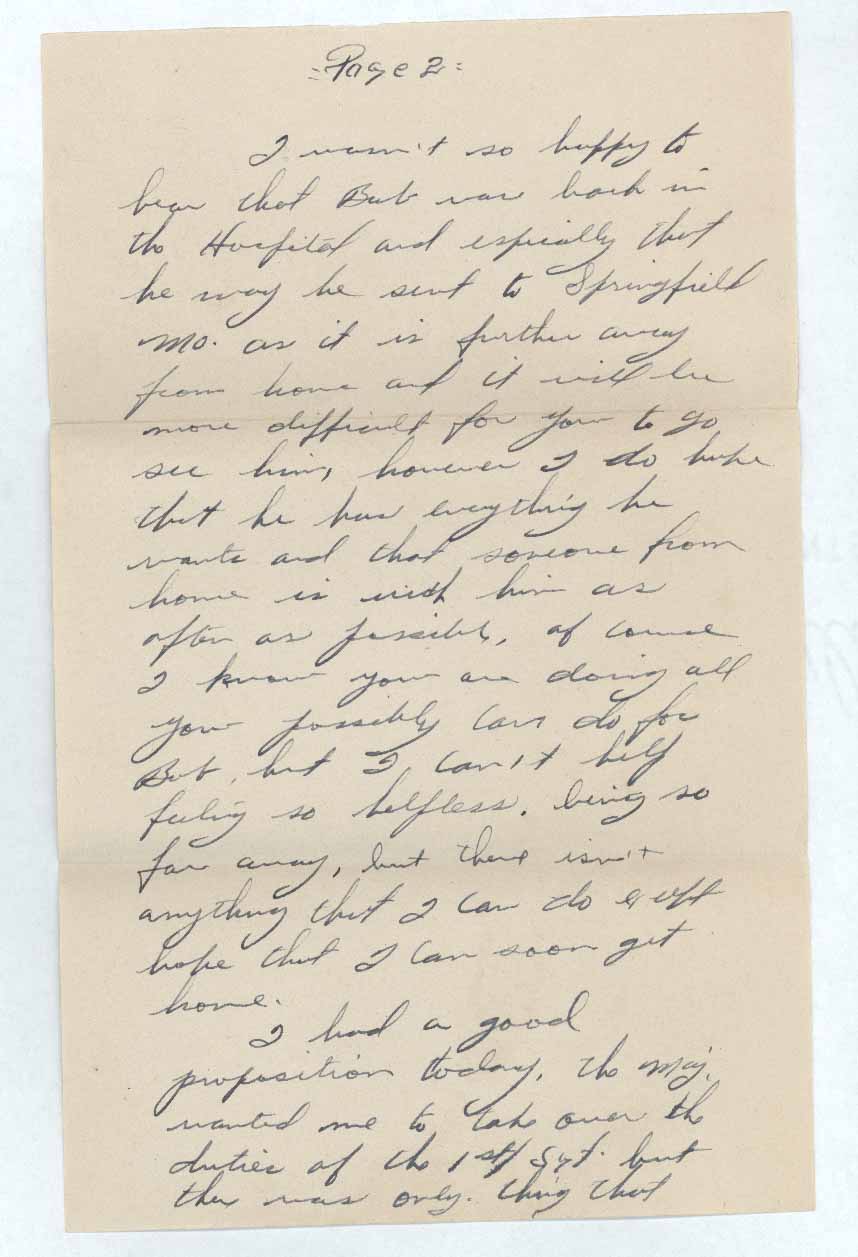 =Page 2=
I wasn't so happy to
hear that Bub was back in
the Hospital and espically that
he may be sent to Springfield
Mo. as it is further away
from home and it will be
more difficult for you to go
see him, however I do hope
that he has everything he
wants and that someone from
home is with him as
often as possible, of course
I know you are doing all
you possibly can do for
Bub, but I can't help
feeling so helpless, being so
far away, but there isn't
anything that I can do except
hope that I can soon get
home.
I had a good
proposition today, the Maj.
wanted me to take over the
duties of the 1st/Sgt. but
there was only. thing that